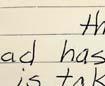 th
ad has
is tak